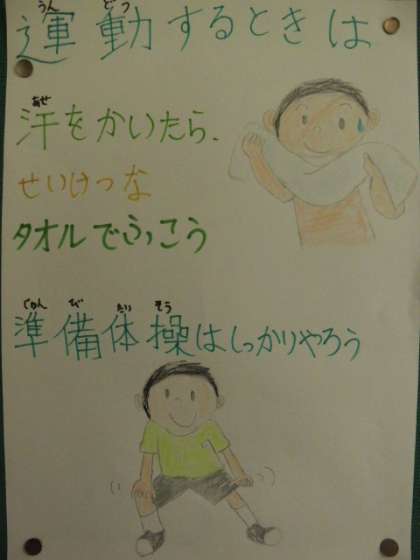 うん どう
運動するときは
あせ
汗をかいたら、
せいけつな
タオルでふこう
じゅん び たい そう
準備体操はしっかりやろう